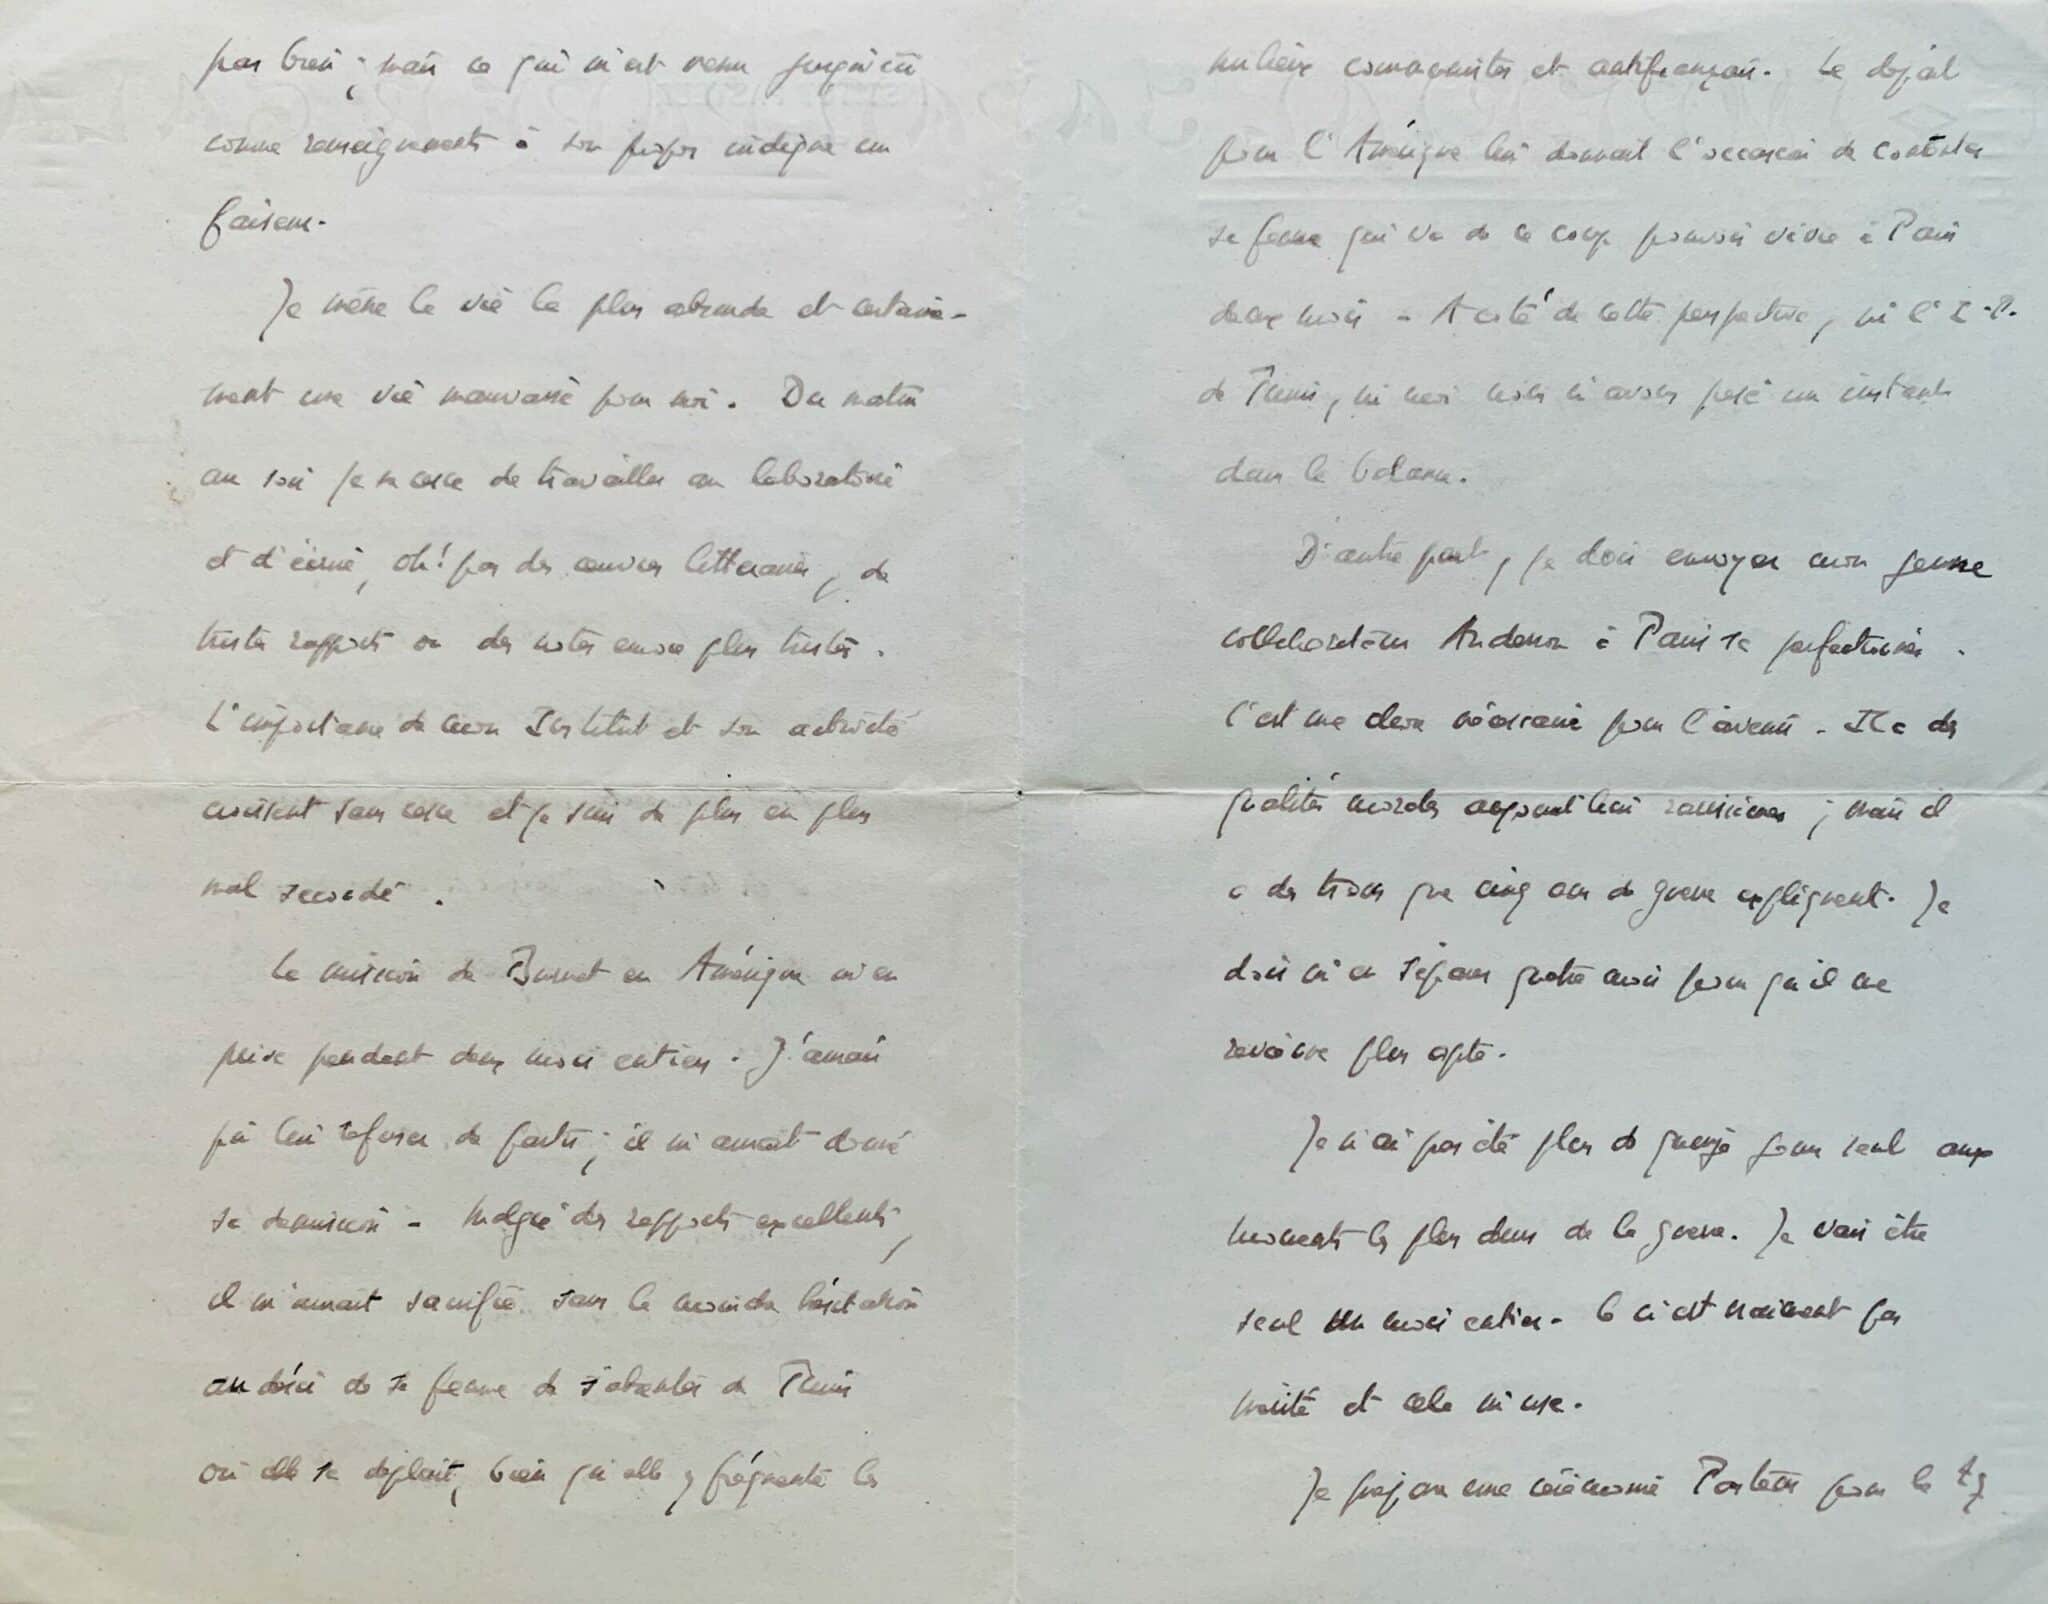 pas bien ; mais ce qui m'est venu jusqu'ici
comme renseignements à son propos indique un
faiseur.
Je mène la vie la plus absurde et certaine-
ment une vie mauvaise pour moi. Du matin
au soir je ne cesse de travailler au laboratoire
et d'écrire, oh! pas des œuvres littéraires, de
tristes rapports ou des notes encore plus tristes.
L'importance de mon Institut et son activité
croissent sans cesse et je suis de plus en plus
mal secondé.
La mission de Burnet en Amérique m'en
prive pendant deux mois entiers. J'aurais
pu lui refuser de partir ; il m'aurait donné
sa démission - Malgré des rapports excellents,
il m'aurait sacrifié sans la moindre hésitation
au désir de sa femme de s'absenter de Tunis
où elle se déplait, bien qu'elle y fréquente les
milieux communistes et antifrançais. Le départ
pour l'Amérique lui donnait l'occasion de contenter
sa femme qui va de ce coup pouvoir vivre à Paris
deux mois - A côté de cette perspective, ni l'I.P.
de Tunis, ni moi nous n'avons pesé un instant
dans la balance.
D'autre part, je dois envoyer mon jeune
collaborateur Anderson à Paris se perfectionner.
C'est une chose nécessaire pour l'avenir - Il a des
qualités morales aujourd'hui rarissimes ; mais il
a des trous que cinq ans de guerre expliquent. Je
dois m'en séparer quatre mois pour qu'il me
revienne plus apte.
Je n'ai pas été plus de quinze jours seul aux
moments les plus durs de la guerre. Je vais être
seul un mois entier - Ce n'est vraiment pas
mérité et cela m'use.
Je prépare une cérémonie Pasteur pour le 27